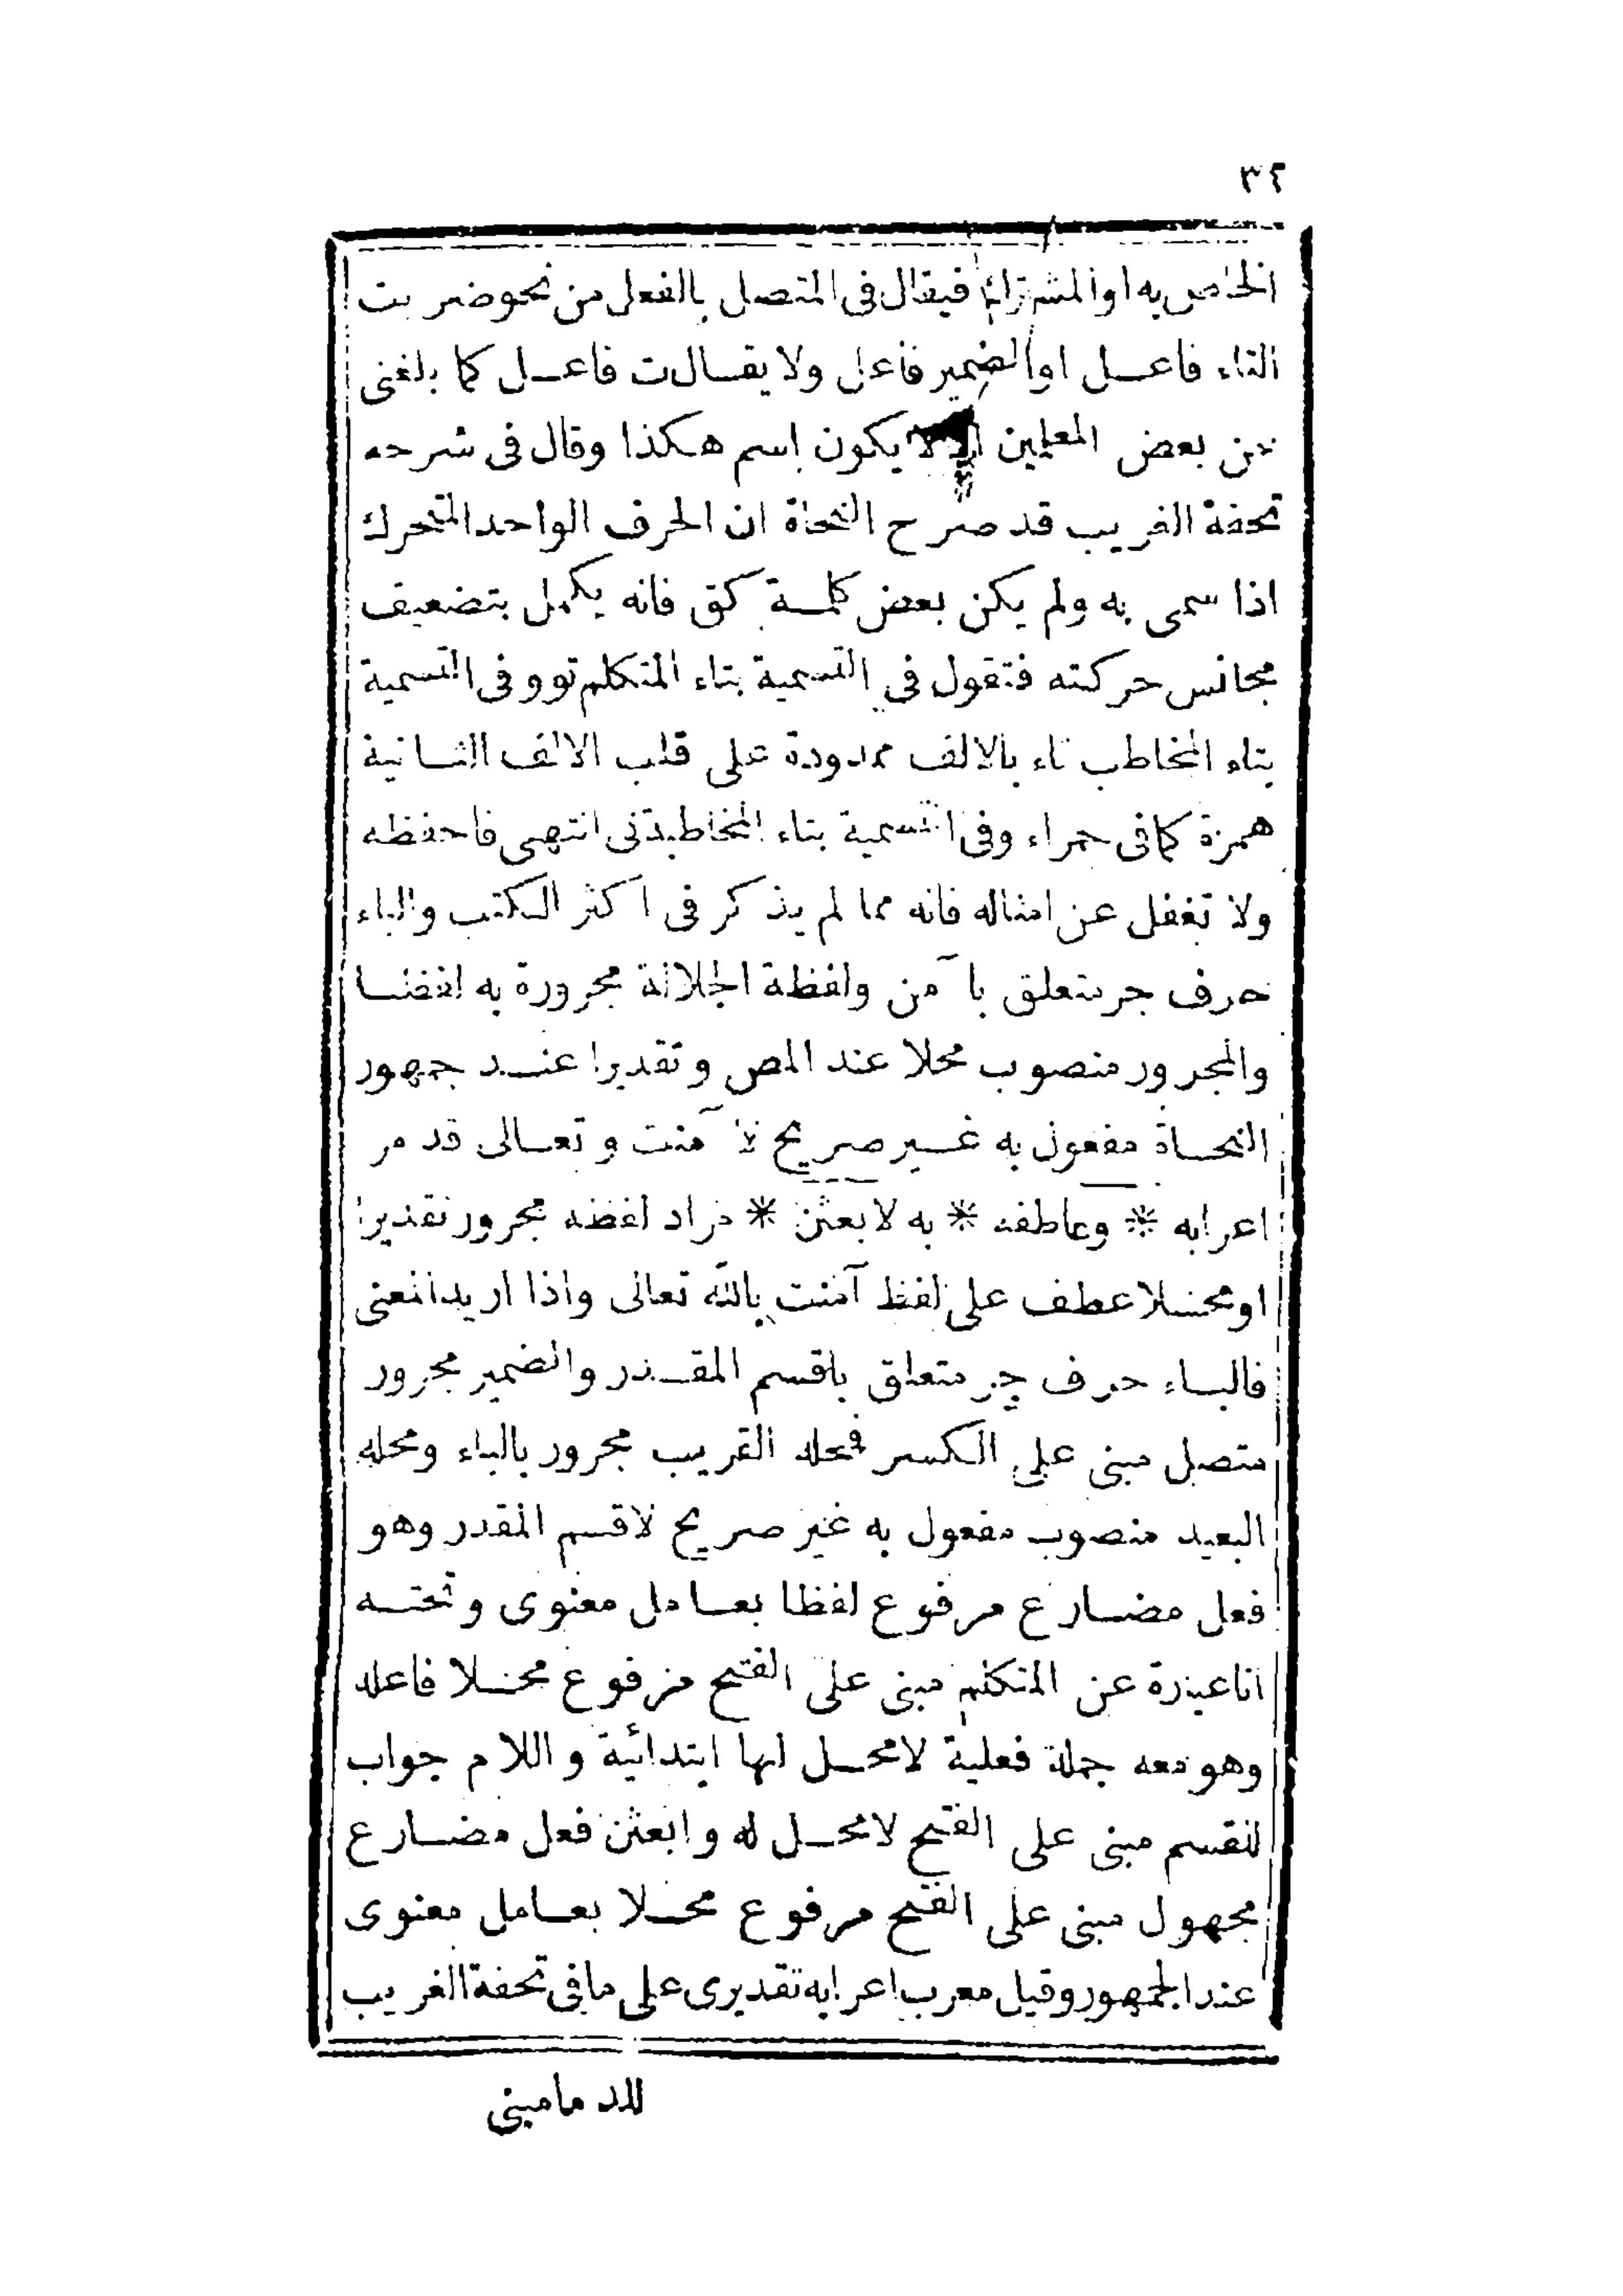 ٣٢
الخاص به او المشترك فيقال فى المتصل بالفعل من نحو ضربت
التاء فاعـــل او الضمير فاعل ولا يقــال ت فاعـــل كما بلغنى
عن بعض المعلمين اذ لا يكون اسم هكذا وقال فى شرحه
تحفة الغريب قد صرح النحاة ان الحرف الواحد المتحرك
اذا سمى به ولم يكن بعض كلمــة كق فانه يكمل بتضعيف
مجانس حركته فتقول فى التسمية بتاء المتكلم توو فى التسمية
بتاء المخاطب تاء بالالف ممدودة على قلب الالف الثــانية
همزة كما فى حمراء وفى التسمية بتاء المخاطبة تى انتهى فاحفظه
ولا تغفل عن امثاله فانه مما لم يذكر فى اكثر الكتب والباء
حرف جر متعلق بآمن ولفظة الجلالة مجرورة به لفظــا
والمجرور منصوب محلا عند المص وتقديرا عنــد جمهور
النحــاة مفعول به غــير صريح لآمنت وتعــالى قد مر
اعرابه * وعاطفه * به لابعثن * مراد لفظه مجرور تقديرا
او محــلا عطف على لفظ آمنت بالله تعالى واذا اريد المعنى
فالبــاء حرف جر متعلق باقسم المقــدر والضمير مجرور
متصل مبنى على الكسر فمحله القريب مجرور بالباء ومحله
البعيد منصوب مفعول به غير صريح لاقسم المقدر وهو
فعل مضــارع مرفوع لفظا بعــامل معنوى وتحتــه
انا عبارة عن المتكلم مبنى على الفتح مرفوع محــلا فاعله
وهو معه جملة فعلية لا محــل لها ابتدائية واللام جواب
للقسم مبنى على الفتح لا محــل له وابعثن فعل مضــارع
مجهول مبنى على الفتح مرفوع محــلا بعــامل معنوى
عند الجمهور وقيل معرب اعرابه تقديرى على ما فى تحفة الغريب
للدمامينى